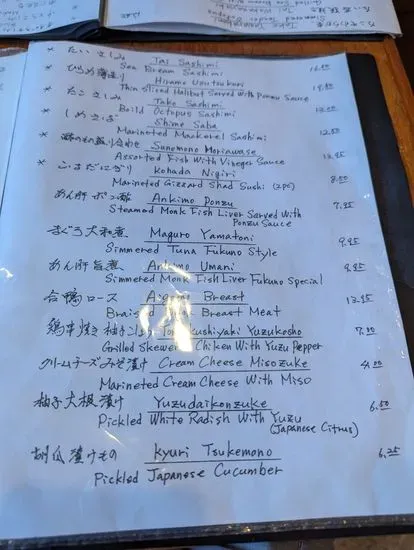 * たいさしみ Tai Sashimi
Sea Bream Sashimi
* ひらめ薄造り Hirame Usuzukuri
Thin Sliced Halibut Served with Ponzu Sauce
* たこさしみ Tako Sashimi
Boild Octopus Sashimi
* しめさば Shime Saba
Marineted Mackerel Sashimi 12.50
* 酢のもの盛り合わせ Sunomono Moriawase
Assorted Fish With Vineger Sauce
* こはだにぎり Kohada Nigiri
Marineted Gizzard Shad Sushi (2PC) 8.00
あん肝ポン酢 Ankimo Ponzu
Steamed Monk Fish Liver Served With 7.95
Ponzu Sauce
まぐろ大和煮 Maguro Yamatoni
Simmered Tuna Fukuno Style 9.95
あん肝旨煮 Ankimo Umani
Simmered Monk Fish Liver Fukuno Special 9.95
合鴨ロース Breast
Braised Breast Meat
鶏串焼き柚子こしょう kushiyaki Yuzukosho
Grilled Skewer Chiken With Yuzu Pepper 7.00
クリームチーズみそ漬け Cream Cheese Misozuke
Marineted Cream Cheese With Miso 4.00
柚子大根漬け Yuzudaikonzuke
Pickled White Radish With Yuzu 6.50
(Japanese Citrus)
胡瓜漬けもの kyuri Tsukemono
Pickled Japanese Cucumber 6.25